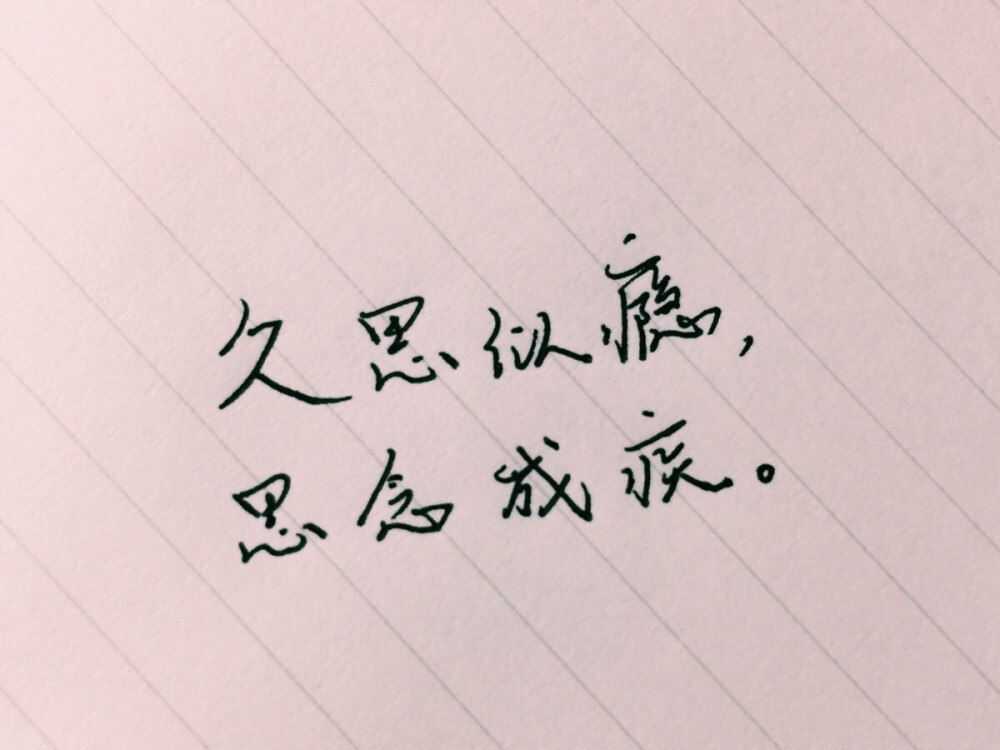 久思似瘾,
思念成疾。